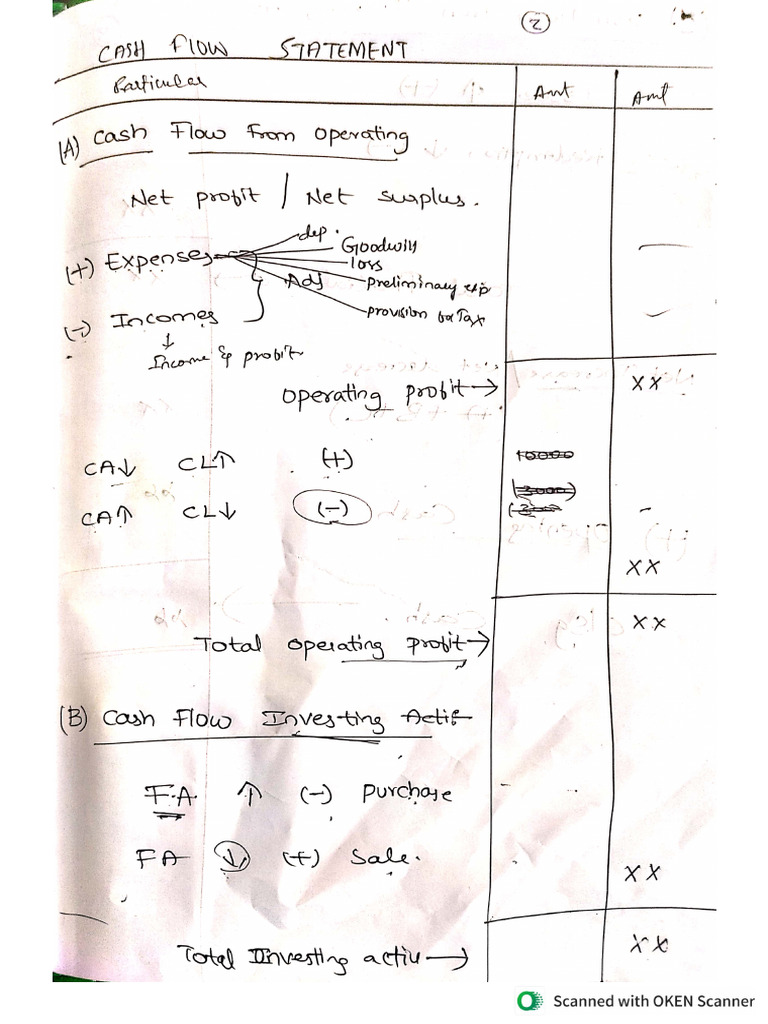 2
CASH FLOW STATEMENT
Particular Amt Amt
(A) Cash Flow From Operating
Net profit / Net surplus.
dep.
Goodwill
(+) Expenses
loss
Adj
preliminary exp
provision for Tax
(-) Incomes
↓
Income & profit
Operating profit → XX
CA↓ CL↑ (+) 10000
CA↑ CL↓ (-)
XX
Total operating profit → XX
(B) Cash Flow Investing Actif
F.A. ↑ (-) Purchase
FA ↓ (+) Sale.
XX
Total Investing activ → XX
Scanned with OKEN Scanner